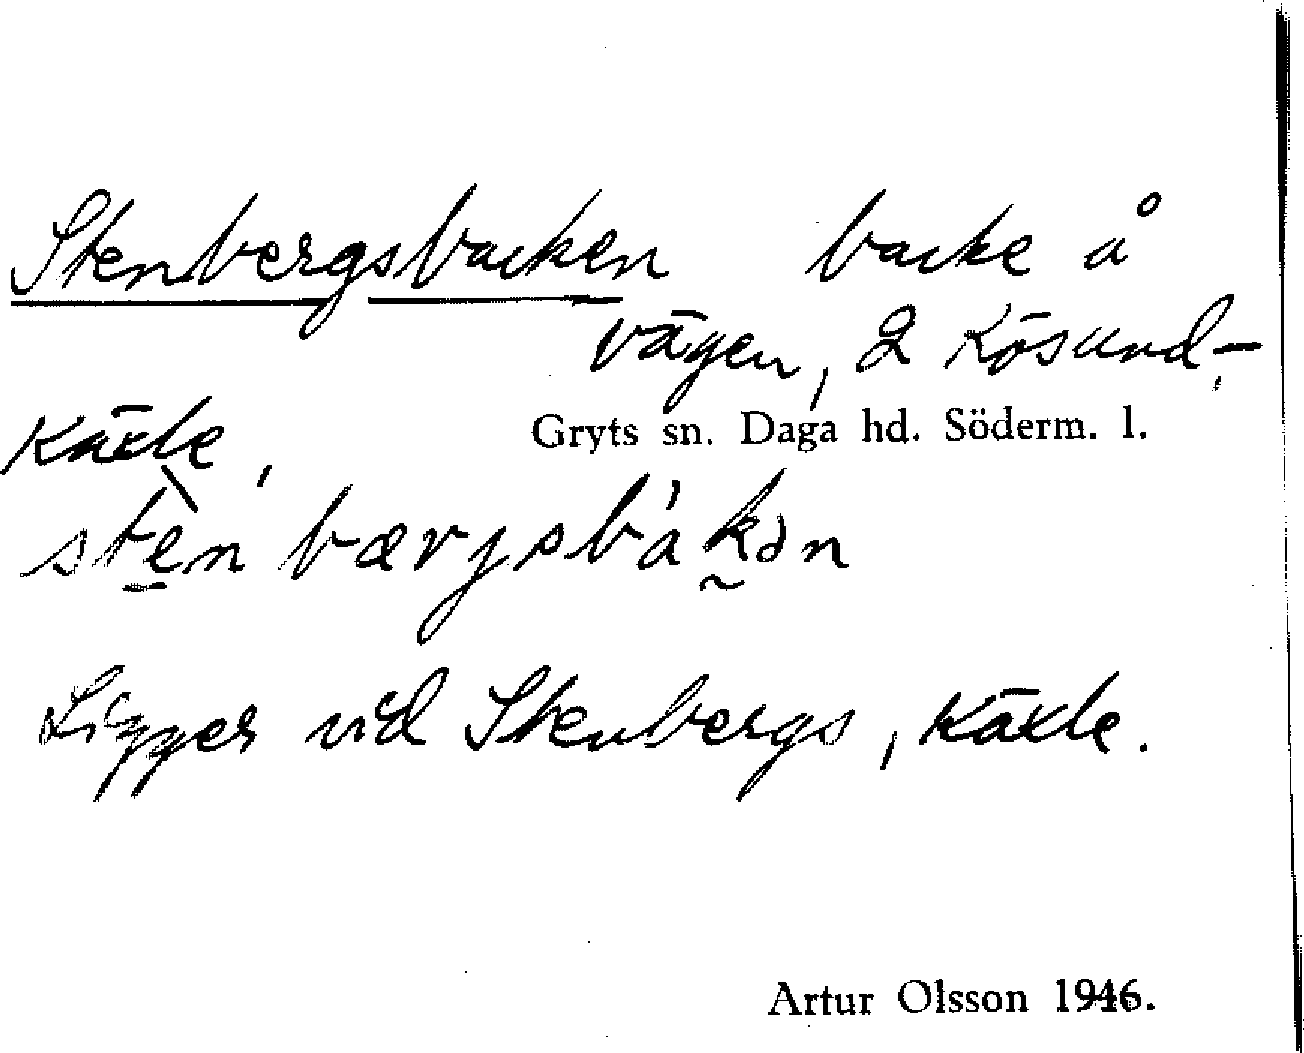 Stenbergsbacken backe å
vägen, 2 Kösund-
Käxle,
Gryts sn. Daga hd. Söderm. l.
stèn bærjsbákən
Ligger vid Stenbergs, Käxle.
Artur Olsson 1946.